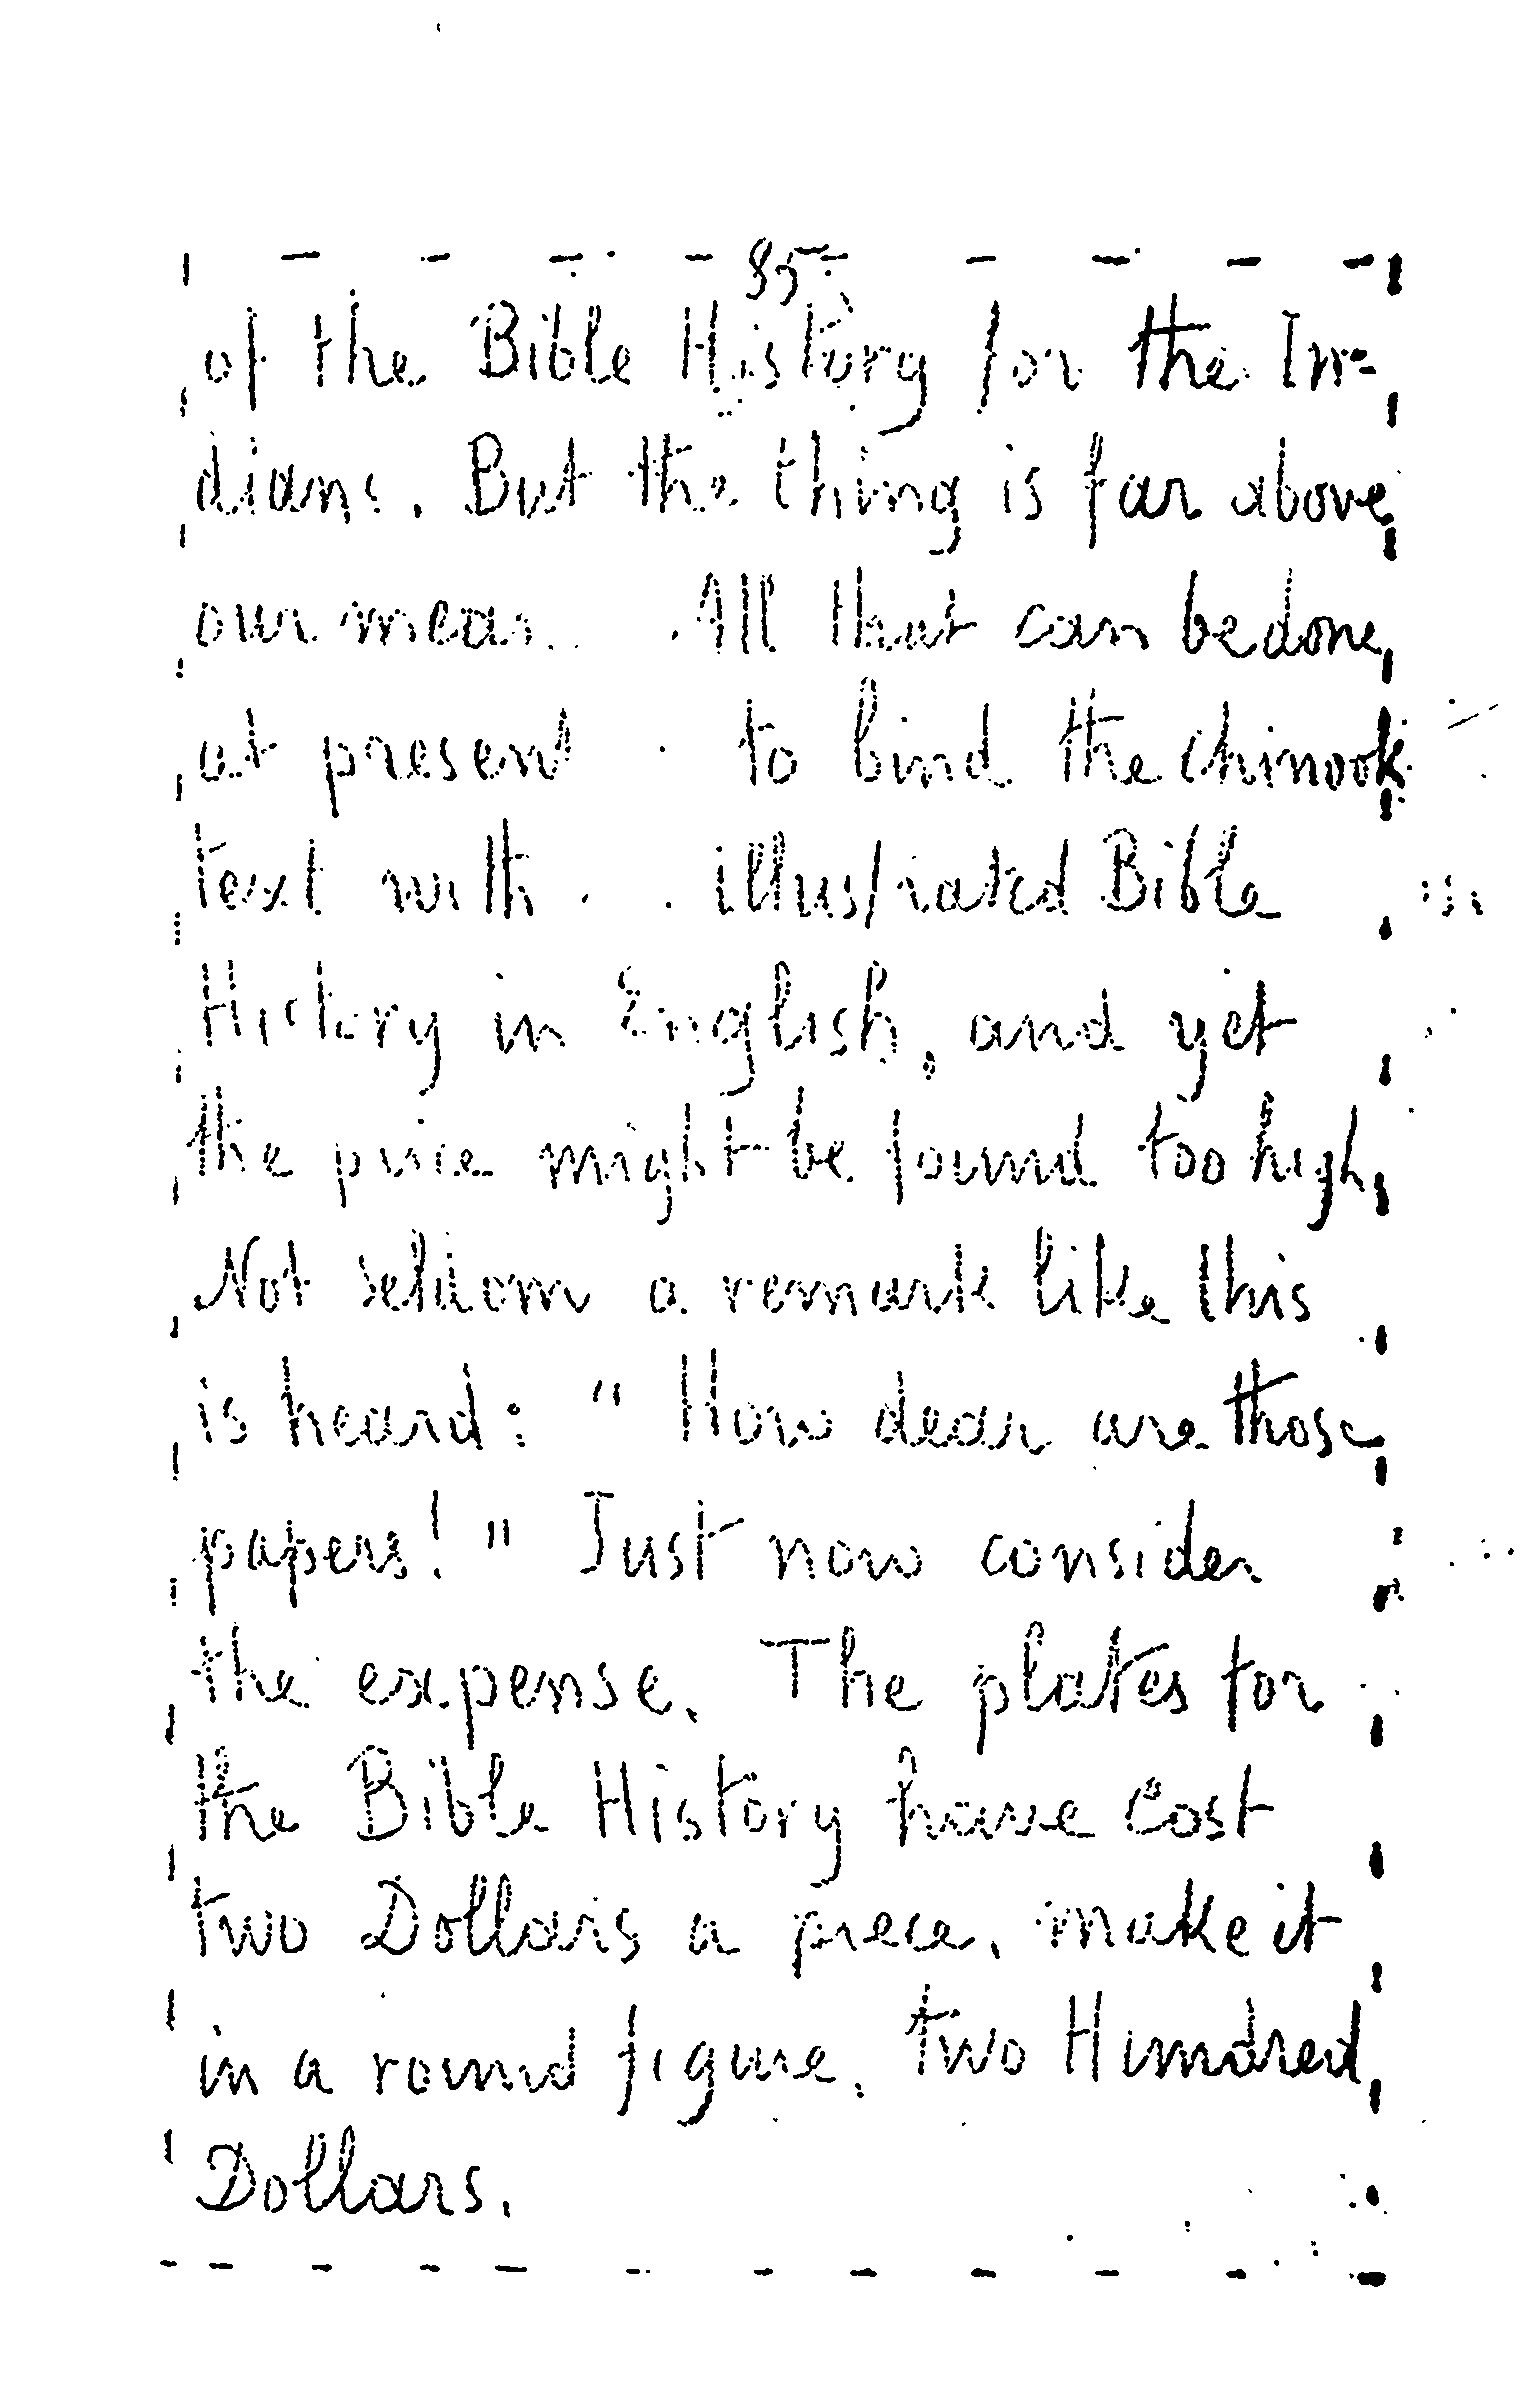 85
of the Bible History for the In-
dians. But the thing is far above
our means. All that can be done
at present to bind the chinook
text with illustrated Bible
History in English, and yet
the price might be found too high.
Not seldom a remark like this
is heard: "How dear are those
papers!" Just now consider
the expense. The plates for
the Bible History have cost
two Dollars a piece, make it
in a round figure, two Hundred
Dollars.